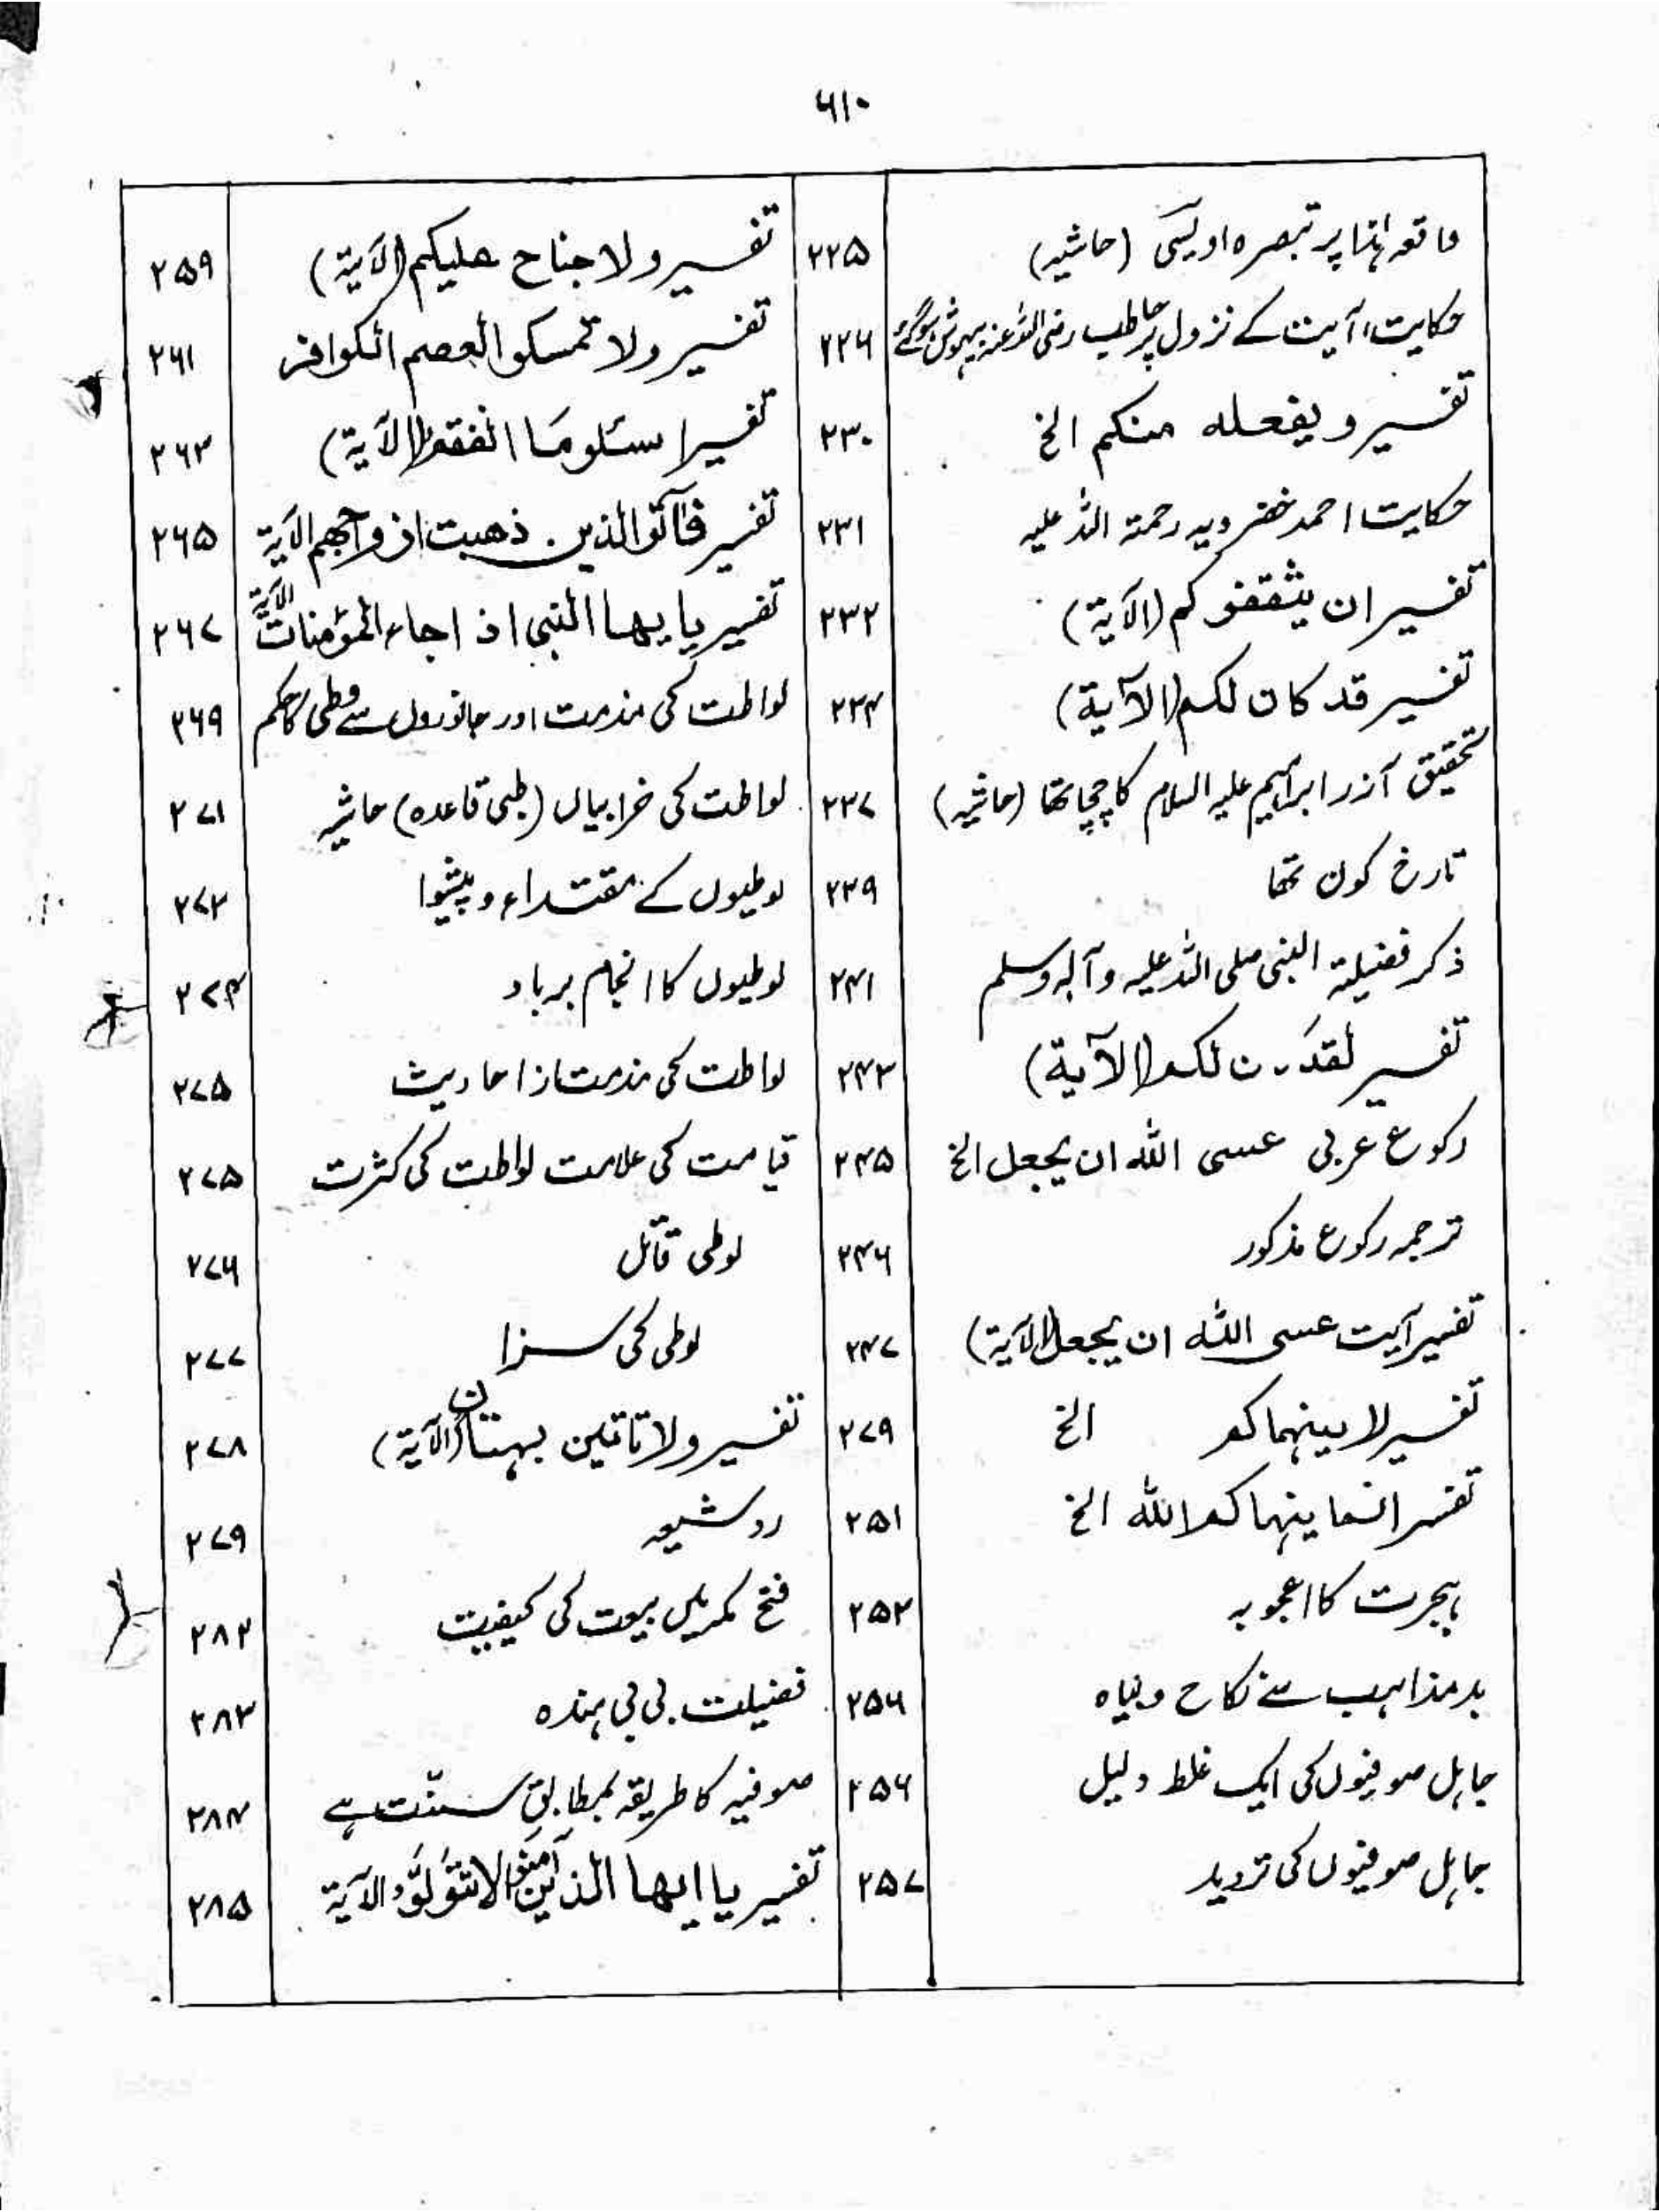 ۶۱۰
واقعہ ہٰذا پر تبصرہ اویسی (حاشیہ) ۲۲۵
حکایت، آیت کے نزول پر حاطب رضی اللہ عنہ بیہوش ہوگئے ۲۲۶
تفسیر و یفعلہ منکم الخ ۲۳۰
حکایت احمد خضرویہ رحمۃ اللہ علیہ ۲۳۱
تفسیر ان یثقفوکم (الآیۃ) ۲۳۲
تفسیر قد کان لکم (الآیۃ) ۲۳۴
تحقیق آزر ابراہیم علیہ السلام کا چچا تھا (حاشیہ) ۲۳۷
تارخ کون تھا ۲۳۹
ذکر فضیلۃ النبی صلی اللہ علیہ وآلہ وسلم ۲۴۱
تفسیر لقد کان لکم (الآیۃ) ۲۴۳
رکوع عربی عسی اللہ ان یجعل الخ ۲۴۵
ترجمہ رکوع مذکور ۲۴۶
تفسیر آیت عسی اللہ ان یجعل (الآیۃ) ۲۴۷
تفسیر لا ینہاکم الخ ۲۷۹
تفسر انما ینہاکم اللہ الخ ۲۵۱
ہجرت کا اعجوبہ ۲۵۲
بدمذاہب سے نکاح و بیاہ ۲۵۶
جاہل صوفیوں کی ایک غلط دلیل ۲۵۶
جاہل صوفیوں کی تردید ۲۵۷
تفسیر ولا جناح علیکم (الآیۃ) ۲۵۹
تفسیر ولا تمسکوا بعصم الکوافر ۲۶۱
تفسیر اسئلو مَا انفقتم (الآیۃ) ۲۶۳
تفسیر فَاٰتُوالذین ذھبت ازواجھم الآیۃ ۲۶۵
تفسیر یایھا النبی اذا جاء المؤمنات الآیۃ ۲۶۷
لواطت کی مذمت اور جانوروں سے وطی کا حکم ۲۶۹
لواطت کی خرابیاں (طبی قاعدہ) حاشیہ ۲۷۱
لوطیوں کے مقتداء و پیشوا ۲۷۲
لوطیوں کا انجام برباد ۲۷۴
لواطت کی مذمت از احادیث ۲۷۵
قیامت کی علامت لواطت کی کثرت ۲۷۵
لوطی قاتل ۲۷۶
لوطی کی سزا ۲۷۷
تفسیر ولا تاتین ببہتان (الآیۃ) ۲۷۸
رد شیعہ ۲۷۹
فتح مکہ میں بیعت کی کیفیت ۲۸۲
فضیلت بی بی ہندہ ۲۸۳
صوفیہ کا طریقہ بمطابق سنّت ہے ۲۸۴
تفسیر یا ایھا الذین آمنوا لا تتولّوا الآیۃ ۲۸۵